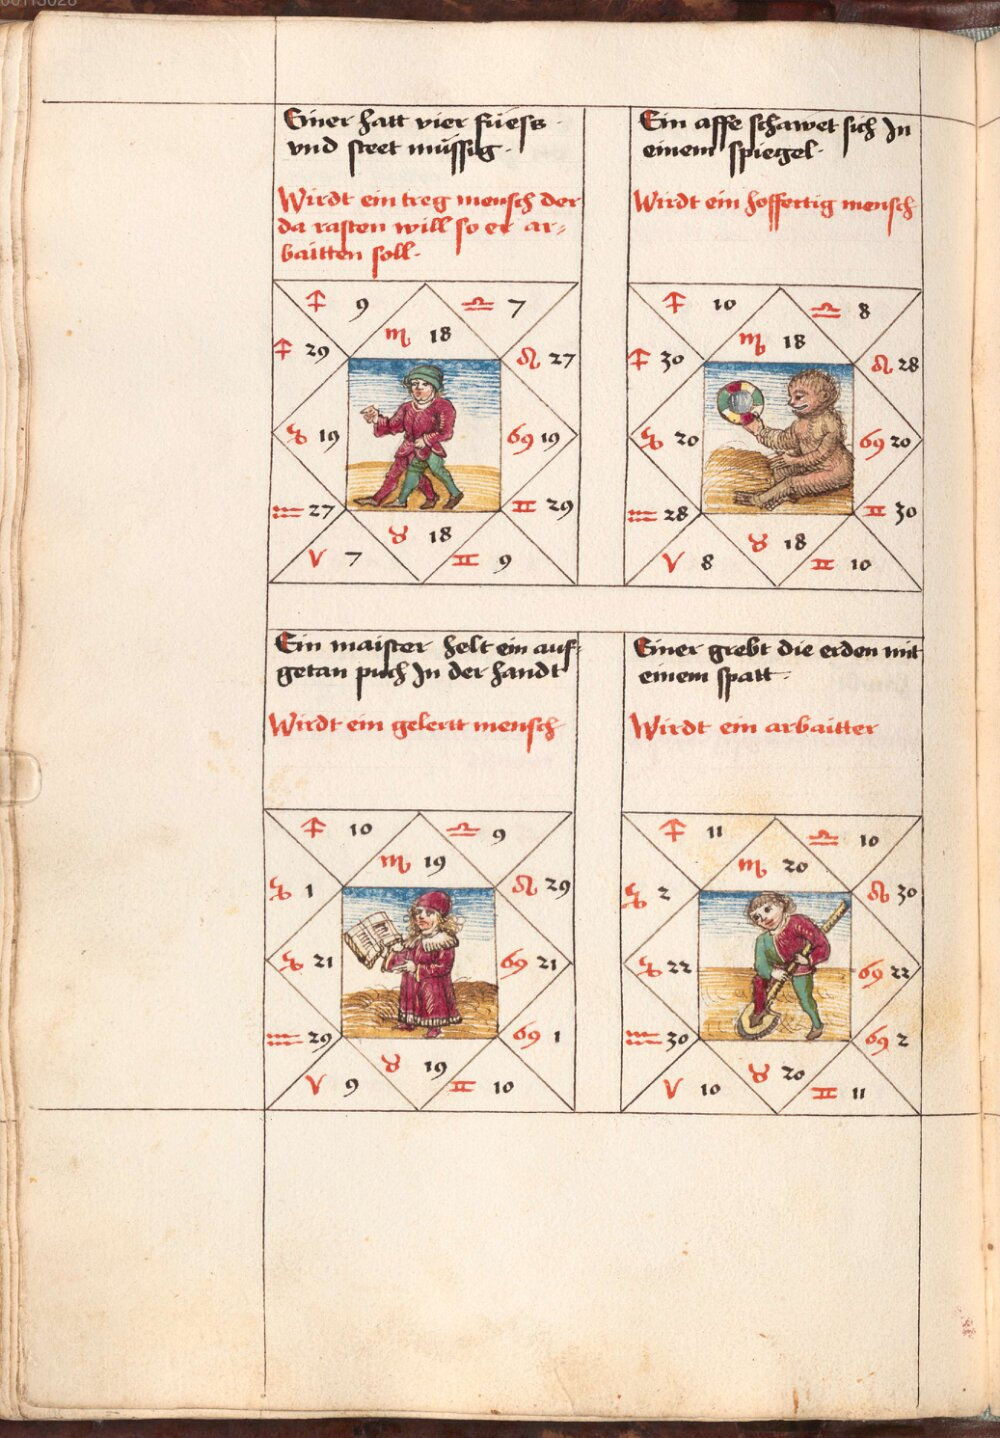 Einer hatt vier füess
vnd steet müssig.
Wirdt ein treg mensch der
da rasten will so er ar-
baitten soll.
♐ 9
♎ 7
♏ 18
♐ 29
♌ 27
♑ 19
♋ 19
♒ 27
♊ 29
♉ 18
♈ 7
♊ 9
Ein affe schawet sich In
einem spiegel.
Wirdt ein hoffertig mensch
♐ 10
♎ 8
♏ 18
♐ 30
♌ 28
♑ 20
♋ 20
♒ 28
♊ 30
♉ 18
♈ 8
♊ 10
Ein maister helt ein auf-
getan puch In der handt
Wirdt ein gelertt mensch
♐ 10
♎ 9
♏ 19
♑ 1
♌ 29
♑ 21
♋ 21
♒ 29
♋ 1
♉ 19
♈ 9
♊ 10
Einer grebt die erden mit
einem spatt.
Wirdt ein arbaitter
♐ 11
♎ 10
♏ 20
♑ 2
♌ 30
♑ 22
♋ 22
♒ 30
♋ 2
♉ 20
♈ 10
♊ 11